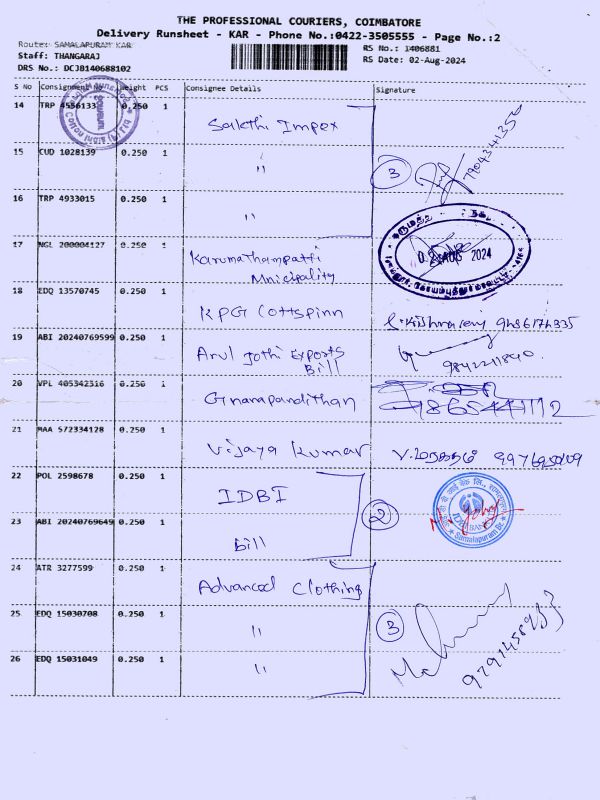 THE PROFESSIONAL COURIERS, COIMBATORE
Delivery Runsheet - KAR - Phone No.:0422-3505555 - Page No.:2
Route: SAMALAPURAM KAR
RS No.: 1406881
Staff: THANGARAJ
RS Date: 02-Aug-2024
DRS No.: DCJB140688102
S No Consignment No Weight PCS Consignee Details Signature
14 TRP 4556133 0.250 1 Sakthi Impex
15 CUD 1028139 0.250 1 〃 3
16 TRP 4933015 0.250 1 〃
17 NGL 200004127 0.250 1 Karumathampatti
Mnicipality
02 AUG 2024
18 EDQ 13570745 0.250 1 KPG Cottspinn
19 ABI 20240769599 0.250 1 Arul Jothi Exports
Bill
20 VPL 405342316 0.250 1 Gnanapandithan
21 MAA 572334128 0.250 1 Vijaya Kumar
22 POL 2598678 0.250 1 IDBI
2
23 ABI 20240769649 0.250 1 Bill
Samalapuram Br.
24 ATR 3277599 0.250 1 Advanced Clothing
25 EDQ 15030708 0.250 1 〃 3
26 EDQ 15031049 0.250 1 〃